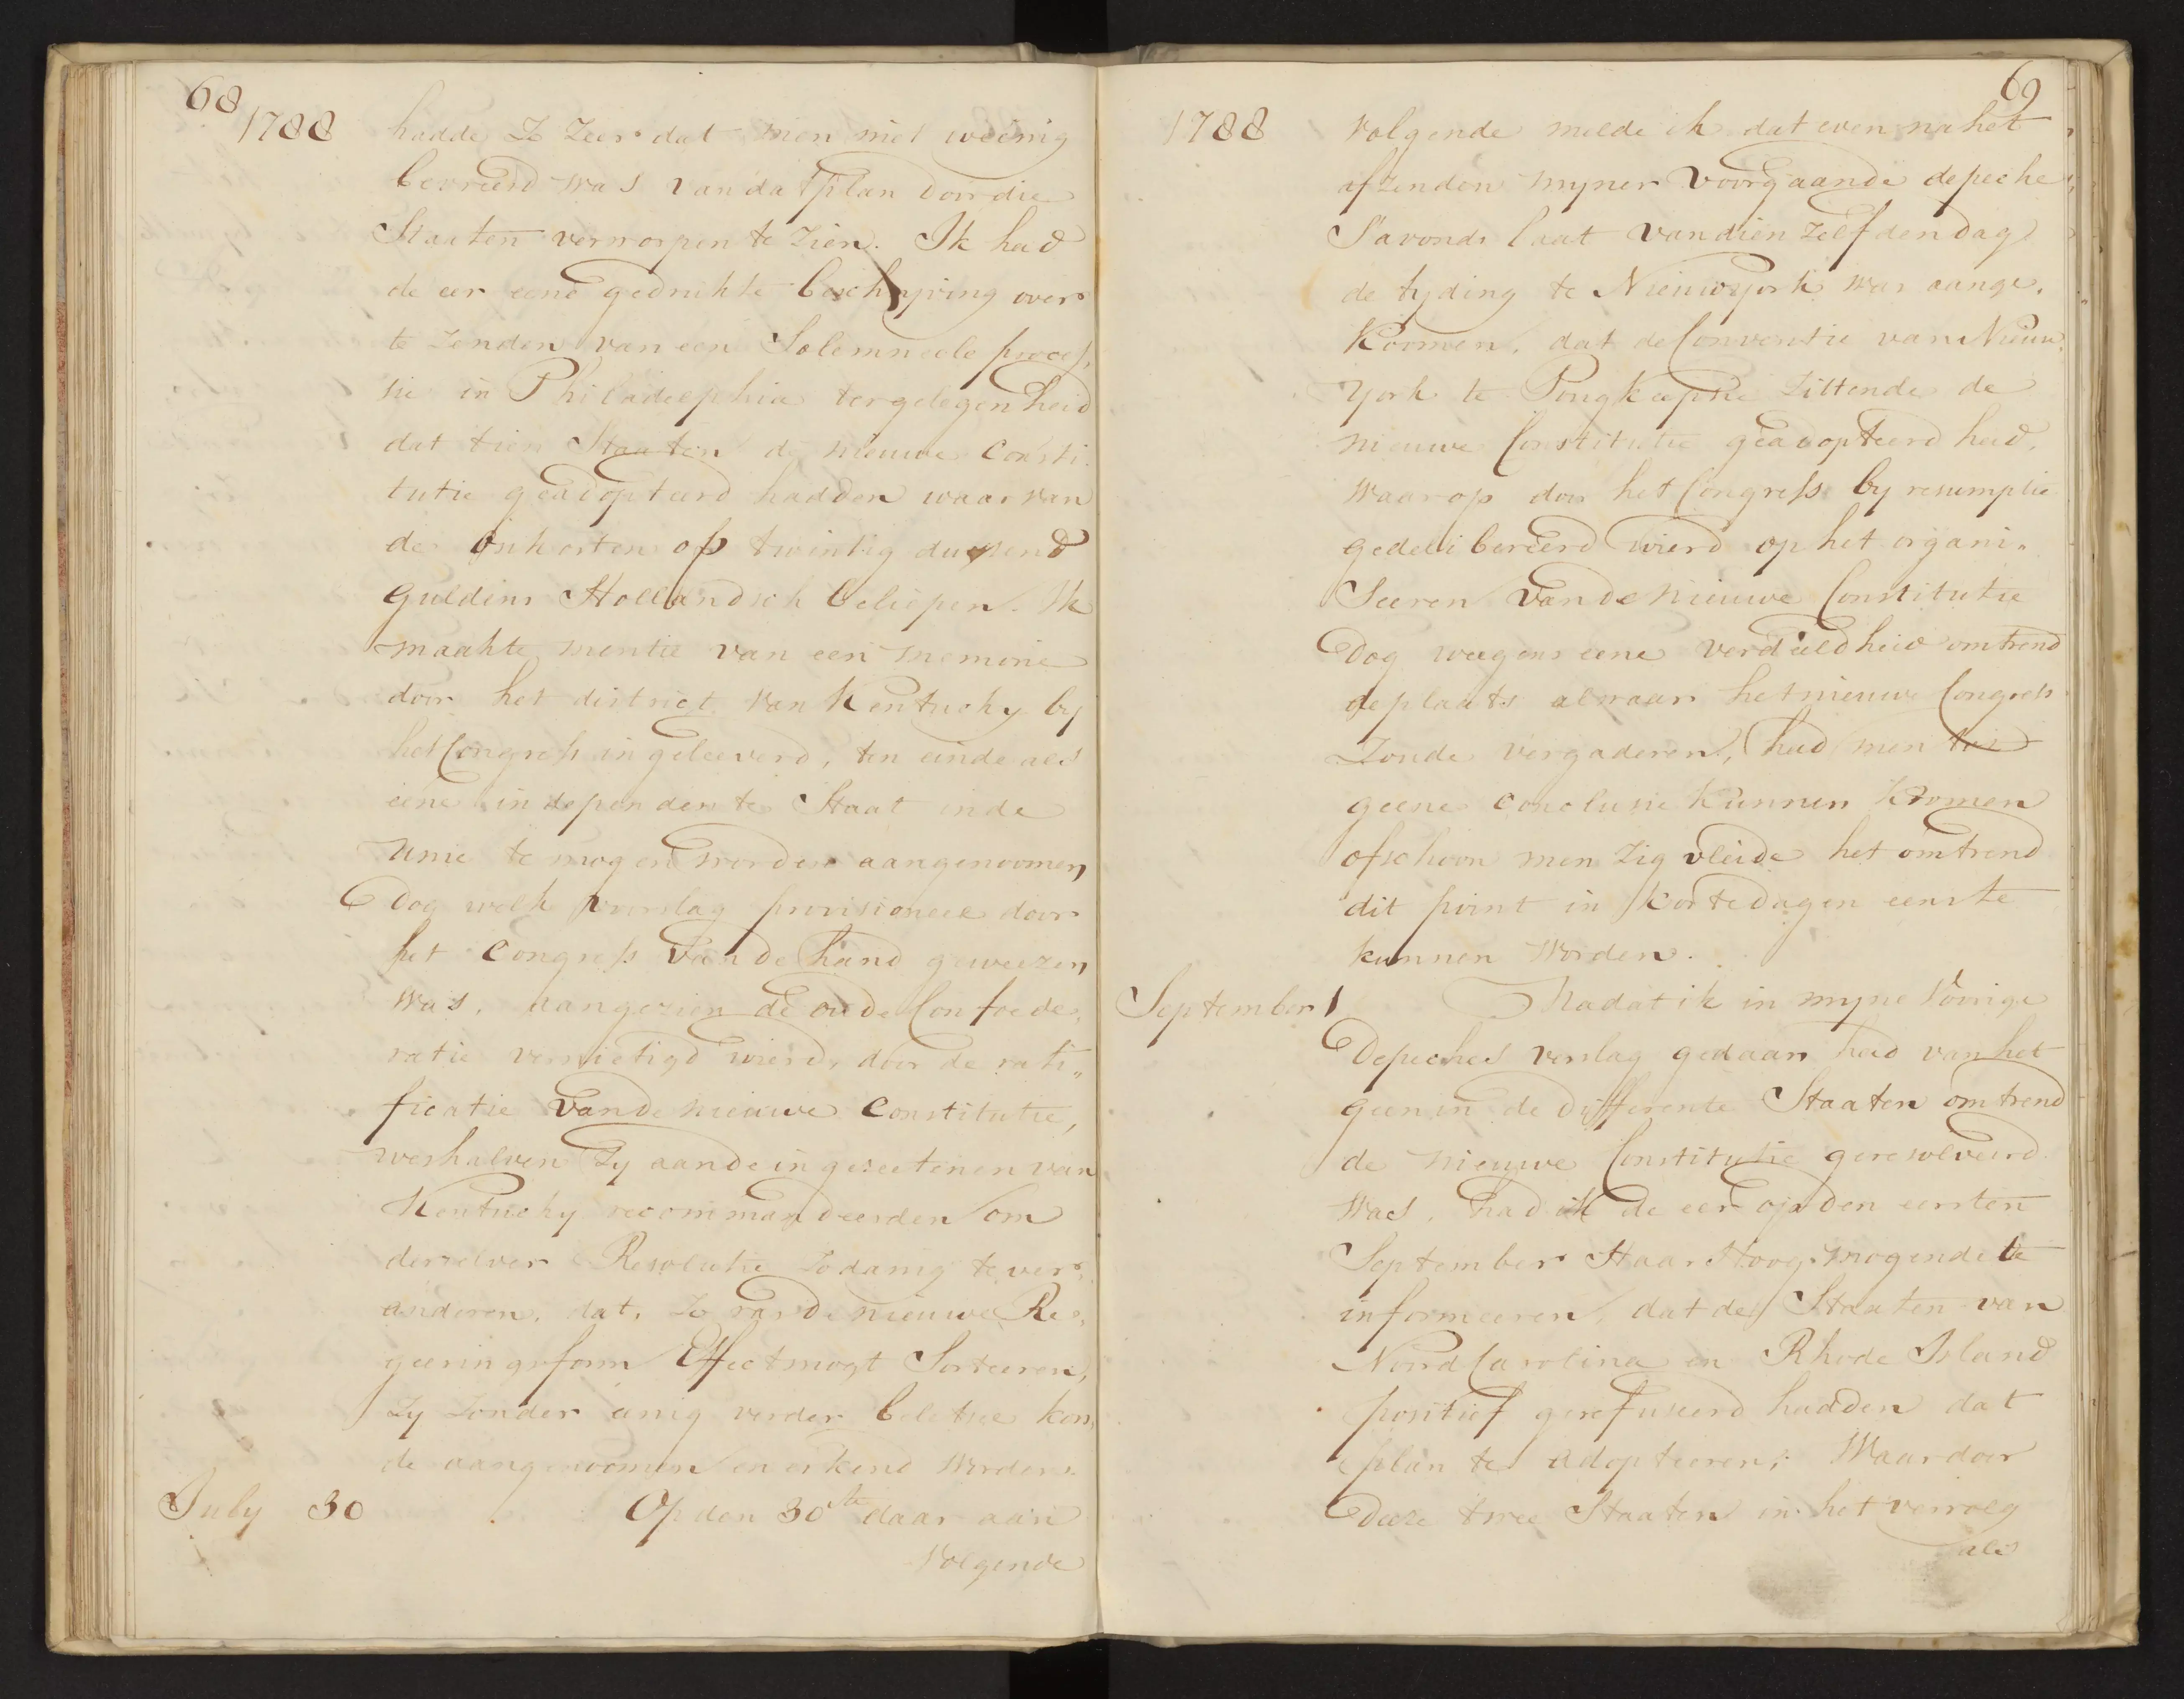 68
1788
hadde Zo Zeer dat men niet weinig
bevreesd was van dat plan door die
Staaten verworpen te Zien. Ik had
de eer eene gedrukte beschryving over
te Zenden van een Solemneele proces,
sie in Philadelphia ter gelegenheid
dat tien Staaten de nieuwe Consti
tutie geadopteerd hadden waar van
de onkosten op twintig duysend
Guldens Hollandsch beliepen. Ik
maakte mentie van een memorie
door het district van Kentucky by
het Congress ingeleeverd, ten einde als
eene independente Staat in de
Unie te mogen worden aangenoomen,
Dog welk voorslag provisioneel door
het Congress van de hand geweezen
was, aangezien de oude Confoede,
ratie vernietigd wierd, door de rati„
ficatie van de nieuwe Constitutie,
weshalven Zy aan de ingezeetenen van
Kentucky recommandeerden om
derzelver Resolutie Zodanig te ver„
anderen, dat, Zo ras de nieuwe Re„
geeringsform Effect mogt Sorteeren,
Zy Zonder eenig verder beletsel kon,
de aangenoomen en erkend worden.
July 30
Op den 30te daar aan
Volgende
69
1788
Volgende melde ik dat even na het
afzenden myner voorgaande depeche
S'avonds laat van dien Zelfden dag
de tyding te Nieuwyork was aange,
Koomen, dat de Conventie van Nieuw,
York te Pougkeepsie Zittende de
nieuwe Constitutie geadopteerd had,
Waar op door het Congress by resumptie
gedelibereerd wierd op het organi„
Seeren van de nieuwe Constitutie
Dog weegens eene verdeeldheid omtrend
de plaats alwaar het nieuwe Congress
Zoude vergaderen, had men tot
geene Conclusie kunnen Koomen
ofschoon men Zig vleide het omtrend
dit point in korte dagen eens te
kunnen worden.
September 1
Nadat ik in myne Voorige
Depeches verslag gedaan had van het
geen in de differente Staaten omtrend
de nieuwe Constitutie geresolveerd
was, had ik de eer op den eersten
September Haar Hoog Mogende te
informeeren, dat de Staaten van
Noord Carolina en Rhode Island
positief gerefuseerd hadden dat
plan te adopteeren; Waar door
Deeze twee Staaten in het vervolg
als